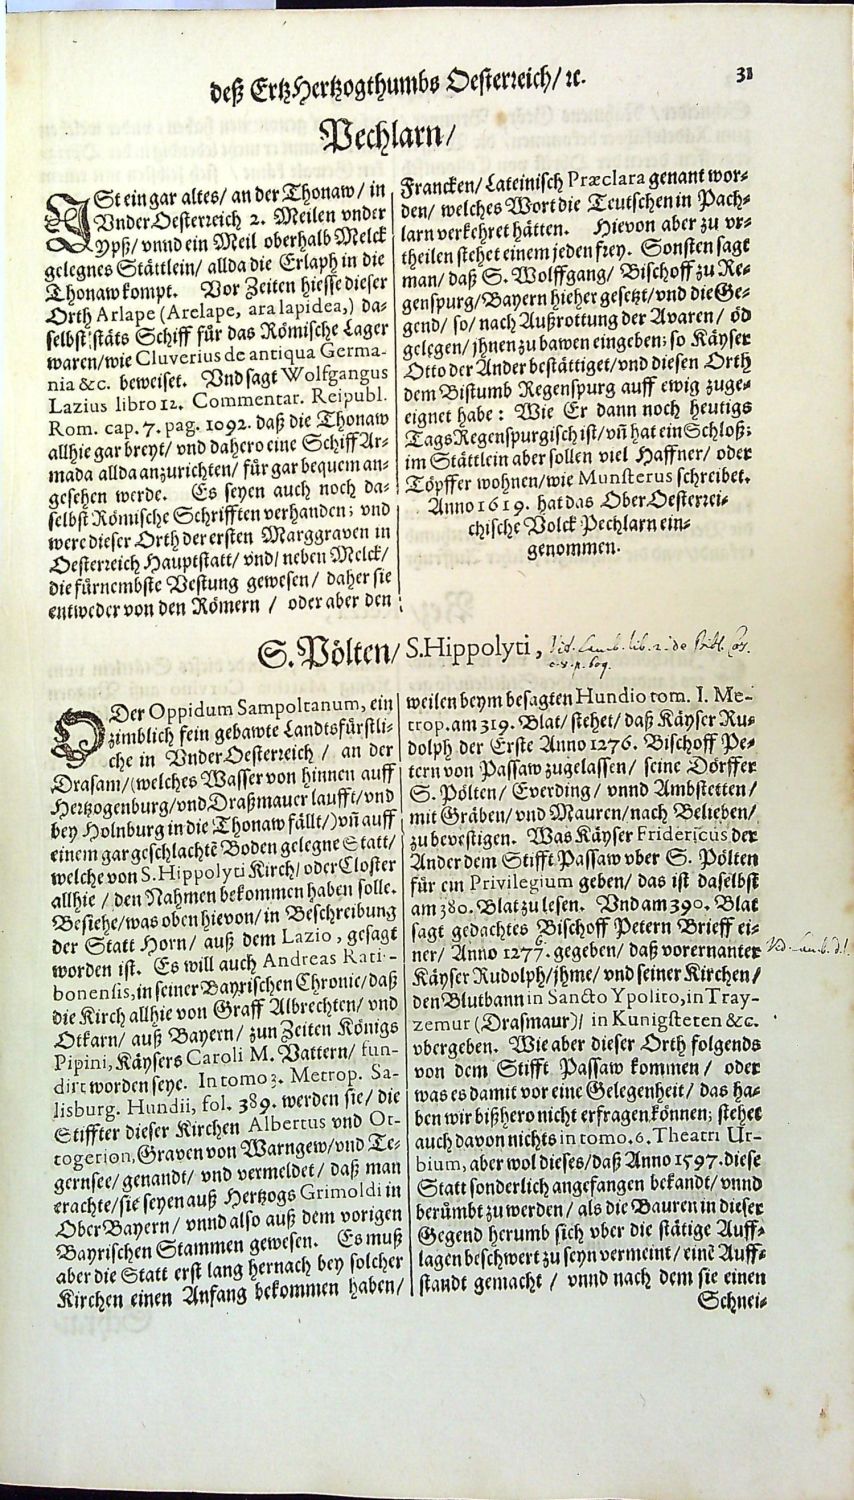 deß ErtzHertzogthumbs Oesterreich/ ꝛc.
31
Pechlarn/
ISt ein gar altes/ an der Thonaw/ in
VnderOesterreich 2. Meilen vnder
Ypß/ vnnd ein Meil oberhalb Melck
gelegnes Stättlein/ allda die Erlaph in die
Thonaw kompt. Vor Zeiten hiesse dieser
Orth Arlape (Arelape, ara lapidea,) da-
selbst stäts Schiff für das Römische Lager
waren/ wie Cluverius de antiqua Germa-
nia &c. beweiset. Vnd sagt Wolfgangus
Lazius libro 12. Commentar. Reipubl.
Rom. cap. 7. pag. 1092. daß die Thonaw
allhie gar breyt/ vnd dahero eine Schiff Ar-
mada allda anzurichten/ für gar bequem an-
gesehen werde. Es seyen auch noch da-
selbst Römische Schrifften verhanden; vnd
were dieser Orth der ersten Marggraven in
Oesterreich Hauptstatt/ vnd/ neben Melck/
die fürnembste Vestung gewesen/ daher sie
entweder von den Römern / oder aber den
Francken/ Lateinisch Præclara genant wor-
den/ welches Wort die Teutschen in Pach-
larn verkehret hätten. Hievon aber zu vr-
theilen stehet einem jeden frey. Sonsten sagt
man/ daß S. Wolffgang/ Bischoff zu Re-
genspurg/ Bayern hieher gesetzt/ vnd die Ge-
gend/ so/ nach Außrottung der Avaren/ öd
gelegen/ jhnen zu bawen eingeben; so Käyser
Otto der Ander bestättiget/ vnd diesen Orth
dem Bistumb Regenspurg auff ewig zuge-
eignet habe: Wie Er dann noch heutigs
Tags Regenspurgisch ist/ vn̄ hat ein Schloß;
im Stättlein aber sollen viel Haffner/ oder
Töpffer wohnen/ wie Munsterus schreibet.
Anno 1619. hat das OberOesterrei-
chische Volck Pechlarn ein-
genommen.
S. Pölten/ S. Hippolyti,
DEr Oppidum Sampoltanum, ein
zimblich fein gebawte Landtsfürstli-
che in VnderOesterreich / an der
Drasam/ (welches Wasser von hinnen auff
Hertzogenburg/ vnd Draßmauer laufft/ vnd
bey Holnburg in die Thonaw fällt/) vn̄ auff
einem gar geschlachtē Boden gelegne Statt/
welche von S. Hippolyti Kirch/ oder Closter
allhie / den Nahmen bekommen haben solle.
Besiehe/ was oben hievon/ in Beschreibung
der Statt Horn/ auß dem Lazio, gesagt
worden ist. Es will auch Andreas Rati-
bonensis, in seiner Bayrischen Chronic/ daß
die Kirch allhie von Graff Albrechten/ vnd
Otkarn/ auß Bayern/ zun Zeiten Königs
Pipini, Käysers Caroli M. Vattern/ fun-
dirt worden seye. In tomo 3. Metrop. Sa-
lisburg. Hundii, fol. 389. werden sie/ die
Stiffter dieser Kirchen Albertus vnd Ot-
togerion, Graven von Warngew/ vnd Te-
gernsee/ genandt/ vnd vermeldet/ daß man
erachte/ sie seyen auß Hertzogs Grimoldi in
OberBayern/ vnnd also auß dem vorigen
Bayrischen Stammen gewesen. Es muß
aber die Statt erst lang hernach bey solcher
Kirchen einen Anfang bekommen haben/
weilen beym besagten Hundio tom. I. Me-
trop. am 319. Blat/ stehet/ daß Käyser Ru-
dolph der Erste Anno 1276. Bischoff Pe-
tern von Passaw zugelassen/ seine Dörffer
S. Pölten/ Everding/ vnnd Ambstetten/
mit Gräben/ vnd Mauren/ nach Belieben/
zu bevestigen. Was Käyser Fridericus der
Ander dem Stifft Passaw vber S. Pölten
für ein Privilegium geben/ das ist daselbst
am 380. Blat zu lesen. Vnd am 390. Blat
sagt gedachtes Bischoff Petern Brieff ei-
ner/ Anno 1277. gegeben/ daß vorernanter
Käyser Rudolph/ jhme/ vnd seiner Kirchen/
den Blutbann in Sancto Ypolito, in Tray-
zemur (Drasmaur)/ in Kunigsteten &c.
vbergeben. Wie aber dieser Orth folgends
von dem Stifft Passaw kommen/ oder
was es damit vor eine Gelegenheit/ das ha-
ben wir bißhero nicht erfragen können; stehet
auch davon nichts in tomo. 6. Theatri Ur-
bium, aber wol dieses/ daß Anno 1597. diese
Statt sonderlich angefangen bekandt/ vnnd
berümbt zu werden/ als die Bauren in dieser
Gegend herumb sich vber die stätige Auff-
lagen beschwert zu seyn vermeint/ einē Auff-
standt gemacht / vnnd nach dem sie einen
Schnei-